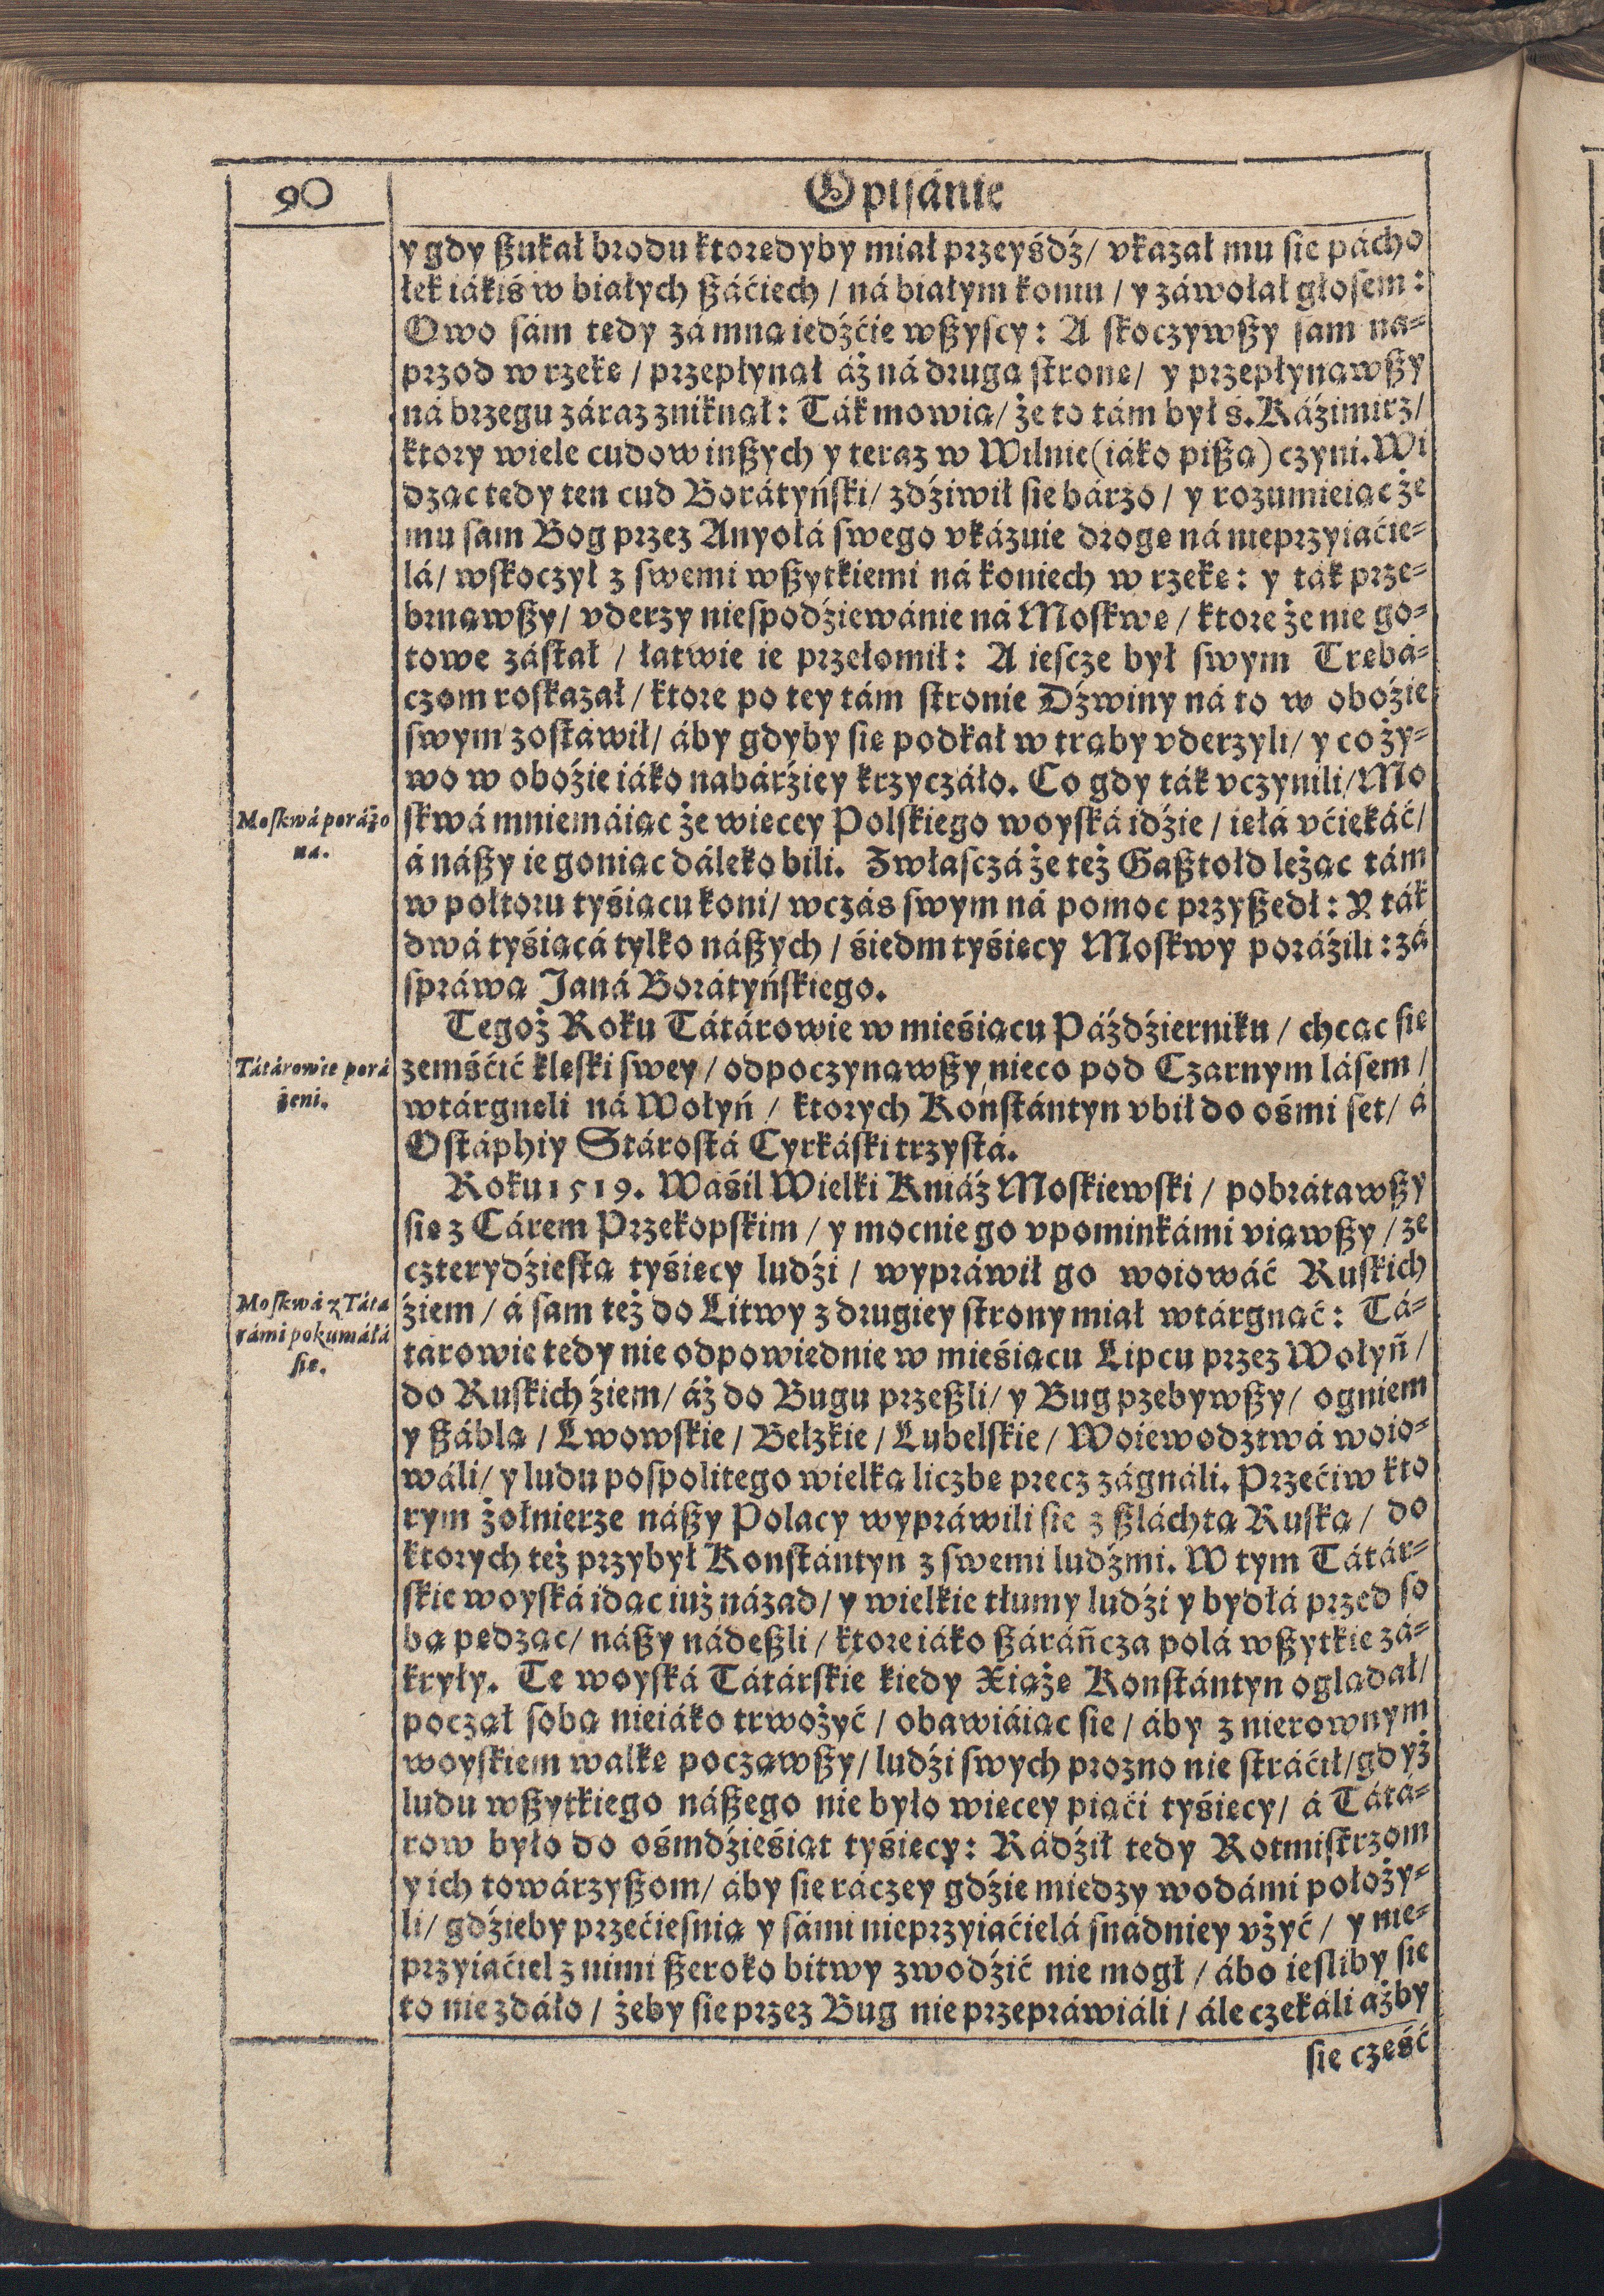 90
Opisánie
y gdy ßukał brodu ktoredyby miał przeyśdź / vkazał mu się pácho
łek iákiś w białych ßáćiech / ná białym koniu / y záwołał głosem:
Owo sám tedy zá mną iedźćie wßyscy: A skoczywßy sam na-
przod w rzekę / przepłynął áż ná drugą stronę / y przepłynąwßy
ná brzegu záraz zniknął: Ták mowią / że to tám był ś. Káźimirz /
ktory wiele cudow inßych y teraz w Wilnie (iáko pißą) czyni. Wi
dząc tedy ten cud Borátyński / zdźiwił się bárzo / y rozumieiąc że
mu sam Bog przez Anyołá swego vkázuie drogę ná nieprzyiaćie-
lá / wskoczył z swemi wßytkiemi ná koniech w rzekę: y ták prze-
brnąwßy / vderzy niespodźiewánie ná Moskwę / ktore że nie go-
towe zástał / łatwie ie przełomił: A iescze był swym Trębá-
czom roskazał / ktore po tey tám stronie Dźwiny ná to w oboźie
swym zostáwił / áby gdyby się podkał w trąby vderzyli / y co ży-
wo w oboźie iáko nabárźiey krzyczáło. Co gdy ták vczynili / Mo
skwá mniemáiąc że więcey Polskiego woyská idźie / ięłá vćiekáć /
á náßy ie goniąc dáleko bili. Zwłasczá że też Gaßtołd leżąc tám
w połtoru tyśiącu koni / wczás swym ná pomoc przyßedł: Y ták
dwá tyśiącá tylko náßych / śiedm tyśięcy Moskwy poráźili: zá
spráwą Janá Borátyńskiego.
Moskwá poráżo
na.
Tegoż Roku Tátárowie w mieśiącu Páźdźierniku / chcąc się
zemśćić klęski swey / odpoczynąwßy nieco pod Czarnym lásem /
wtárgnęli ná Wołyń / ktorych Konstántyn vbił do ośmi set / á
Ostáphiy Stárostá Cyrkáski trzystá.
Tátárowie porá
żeni.
Roku 1519. Waśil Wielki Kniáź Moskiewski / pobrátawßy
się z Cárem Przekopskim / y mocnie go vpominkámi viąwßy / ze
czterydźiestą tyśięcy ludźi / wypráwił go woiowáć Ruskich
źiem / á sam też do Litwy z drugiey strony miał wtárgnąć: Tá-
tarowie tedy nie odpowiednie w mieśiącu Lipcu przez Wołyń /
do Ruskich źiem / áż do Bugu przeßli / y Bug pzebywßy / ogniem
y ßáblą / Lwowskie / Bełzkie / Lubelskie / Woiewodztwá woio-
wáli / y ludu pospolitego wielką liczbę precz zágnáli. Przećiw kto
rym żołnierze náßy Polacy wypráwili się z ßláchtą Ruską / do
ktorych też przybył Konstántyn z swemi ludźmi. W tym Tátár-
skie woyská idąc iuż názad / y wielkie tłumy ludźi y bydłá przed so
bą pędząc / náßy nádeßli / ktore iáko ßáráńcza polá wßytkie zá-
kryły. Te woyská Tátárskie kiedy Xiążę Konstántyn oglądał /
począł sobą nieiáko trwożyć / obawiáiąc się / áby z nierownym
woyskiem walkę począwßy / ludźi swych prozno nie stráćił / gdyż
ludu wßytkiego náßego nie było więcey piąći tyśięcy / á Tátá-
row było do ośmdźieśiąt tyśięcy: Rádźił tedy Rotmistrzom
y ich towárzyßom / áby się ráczey gdźie między wodámi położy-
li / gdźieby przećieśnią y sámi nieprzyiaćielá snádniey vżyć / y nie-
przyiaćiel z nimi ßeroko bitwy zwodźić nie mogł / ábo iesliby się
to nie zdáło / żeby się przez Bug nie przepráwiáli / ále czekáli ażby
Moskwá z Táta
rámi pokumáłá
się.
się część